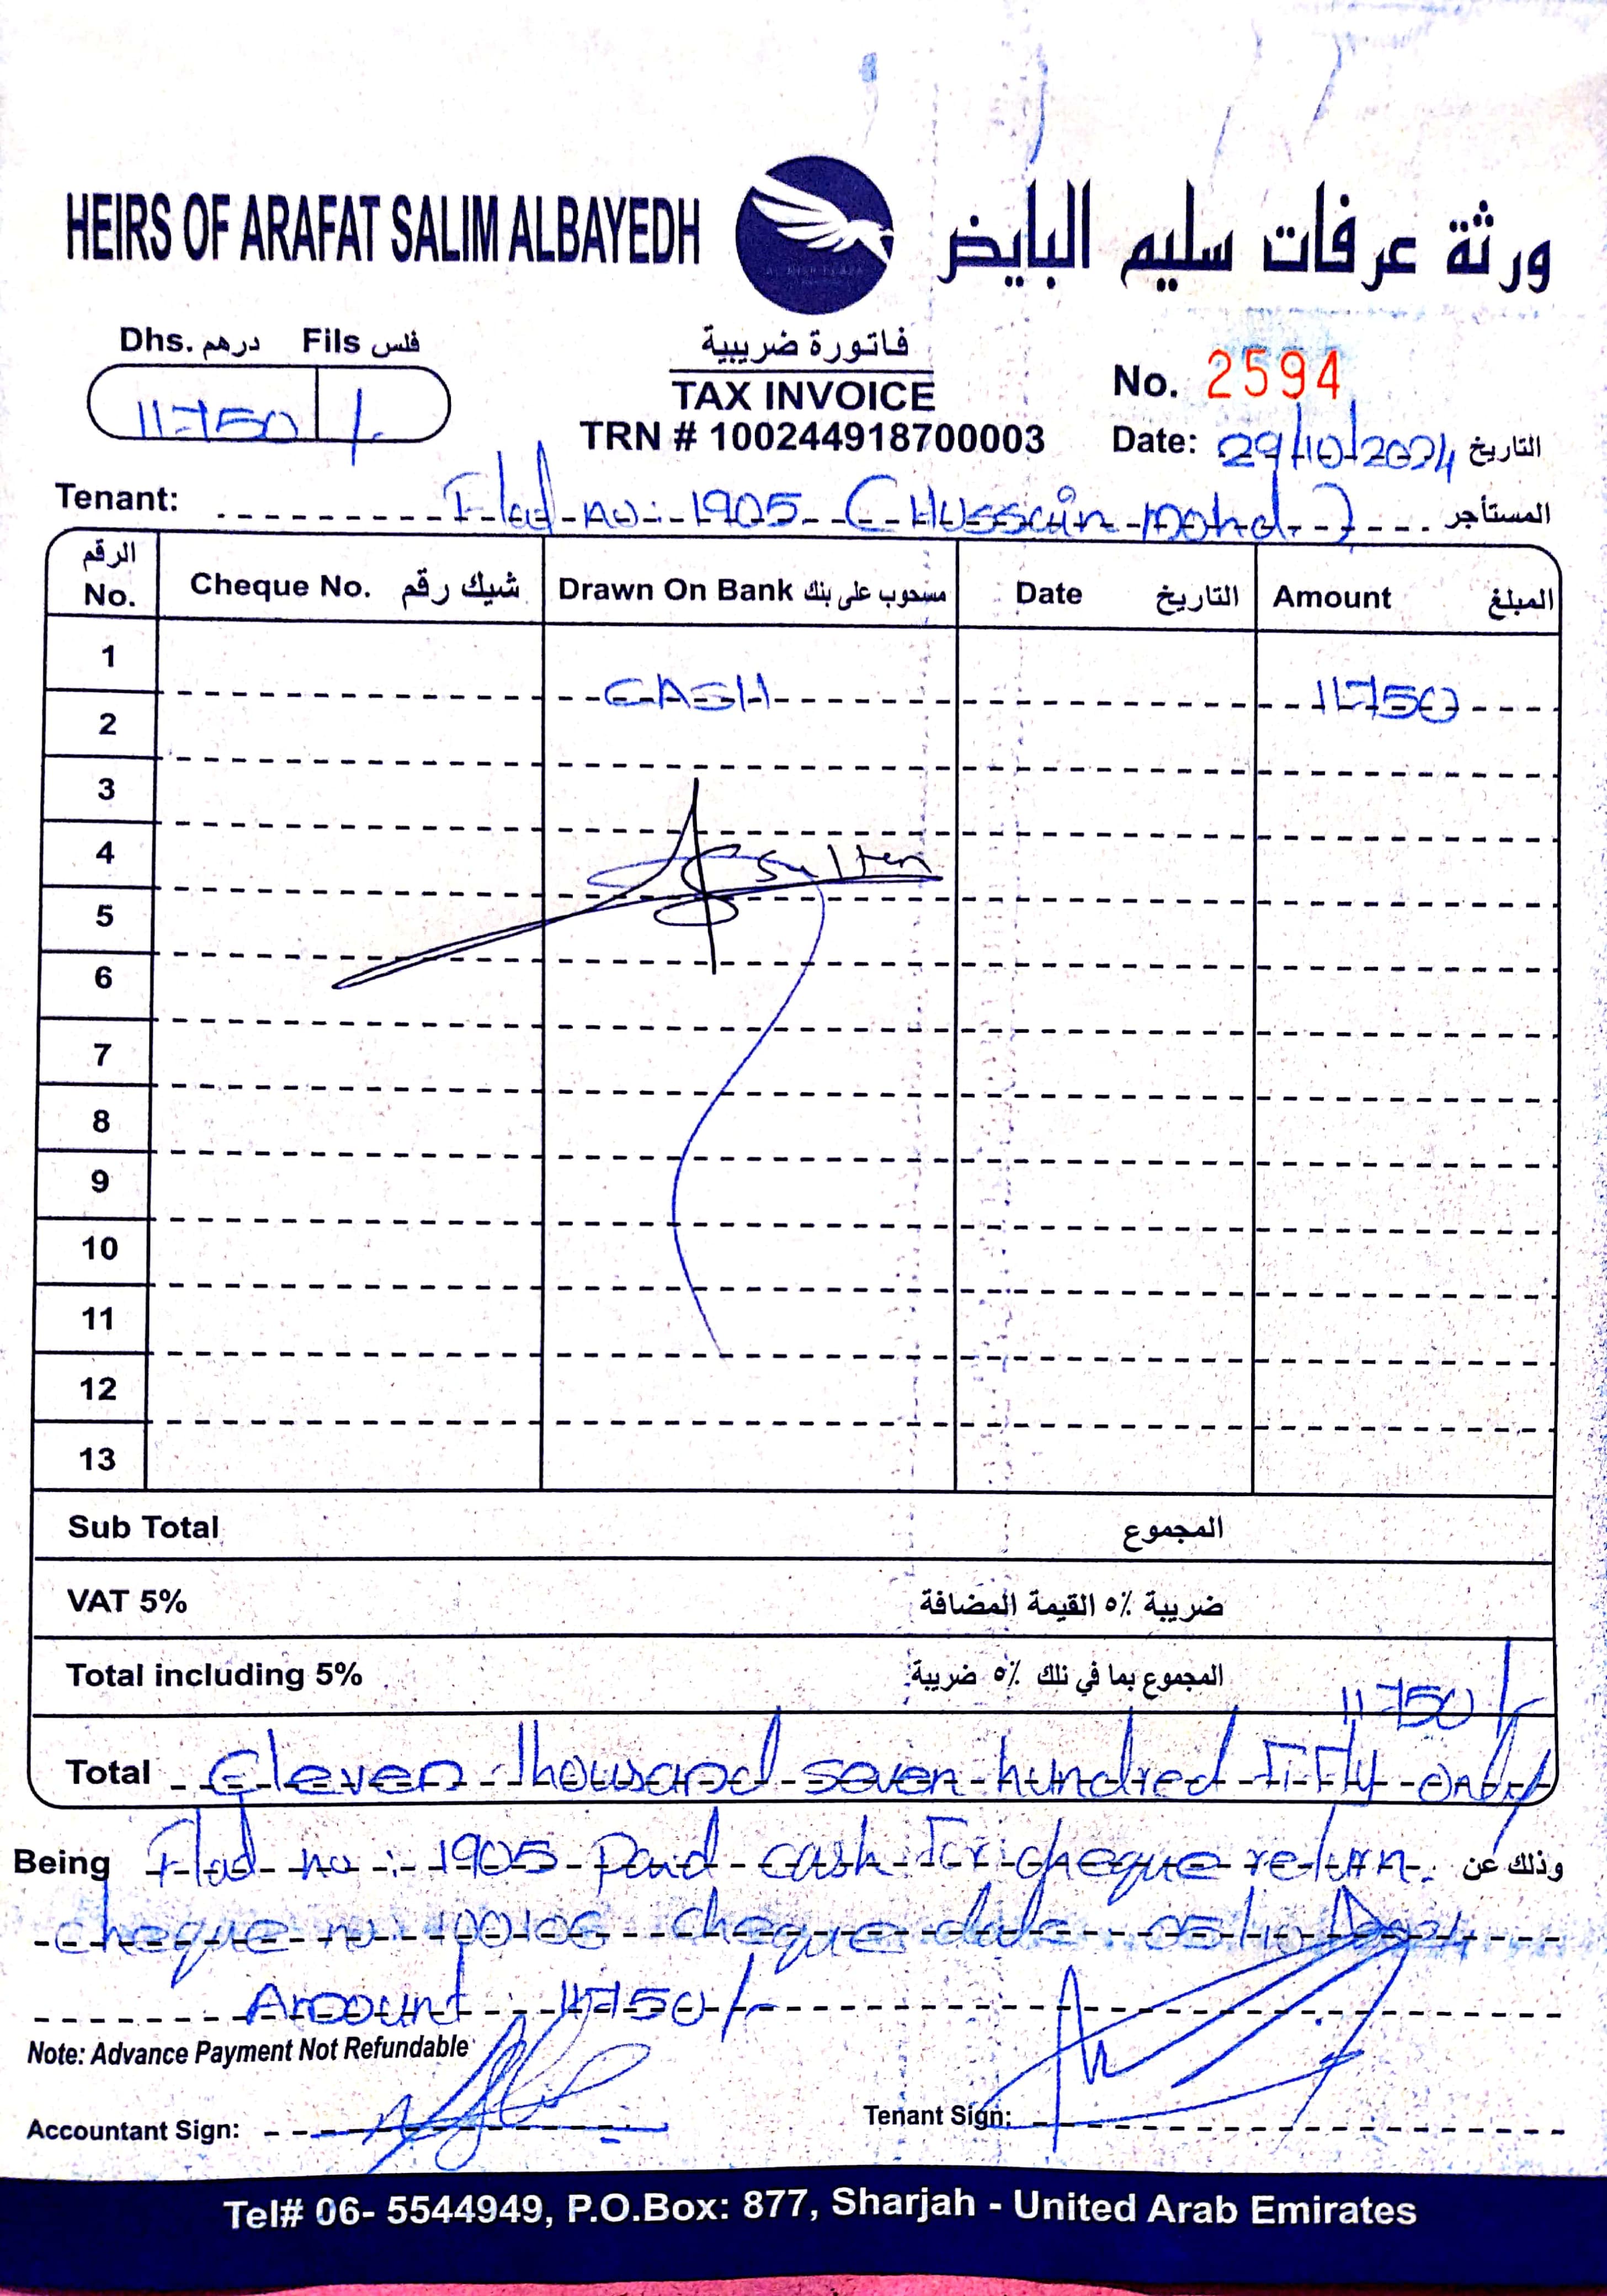 HEIRS OF ARAFAT SALIM ALBAYEDH
ورثة عرفات سليم البايض
Dhs. درهم Fils فلس
11750 /-
فاتورة ضريبية
TAX INVOICE
TRN # 100244918700003
No. 2594
Date: 29/10/2024 التاريخ
Tenant: Flad no: 1905 (Hussain mohd.) المستأجر
الرقم No. Cheque No. شيك رقم Drawn On Bank مسحوب على بنك Date التاريخ Amount المبلغ
1 CASH 11750
2
3
4 Sultan
5
6
7
8
9
10
11
12
13
Sub Total المجموع
VAT 5% ضريبة ٥٪ القيمة المضافة
Total including 5% المجموع بما في ذلك ٥٪ ضريبة 11750/-
Total Eleven thousand seven hundred Fifty only
Being Flad no: 1905 Paid cash For cheque return. وذلك عن
cheque no 100106 cheque date 05/10/2024
Amount: 11750/-
Note: Advance Payment Not Refundable
Accountant Sign: Tenant Sign:
Tel# 06- 5544949, P.O.Box: 877, Sharjah - United Arab Emirates